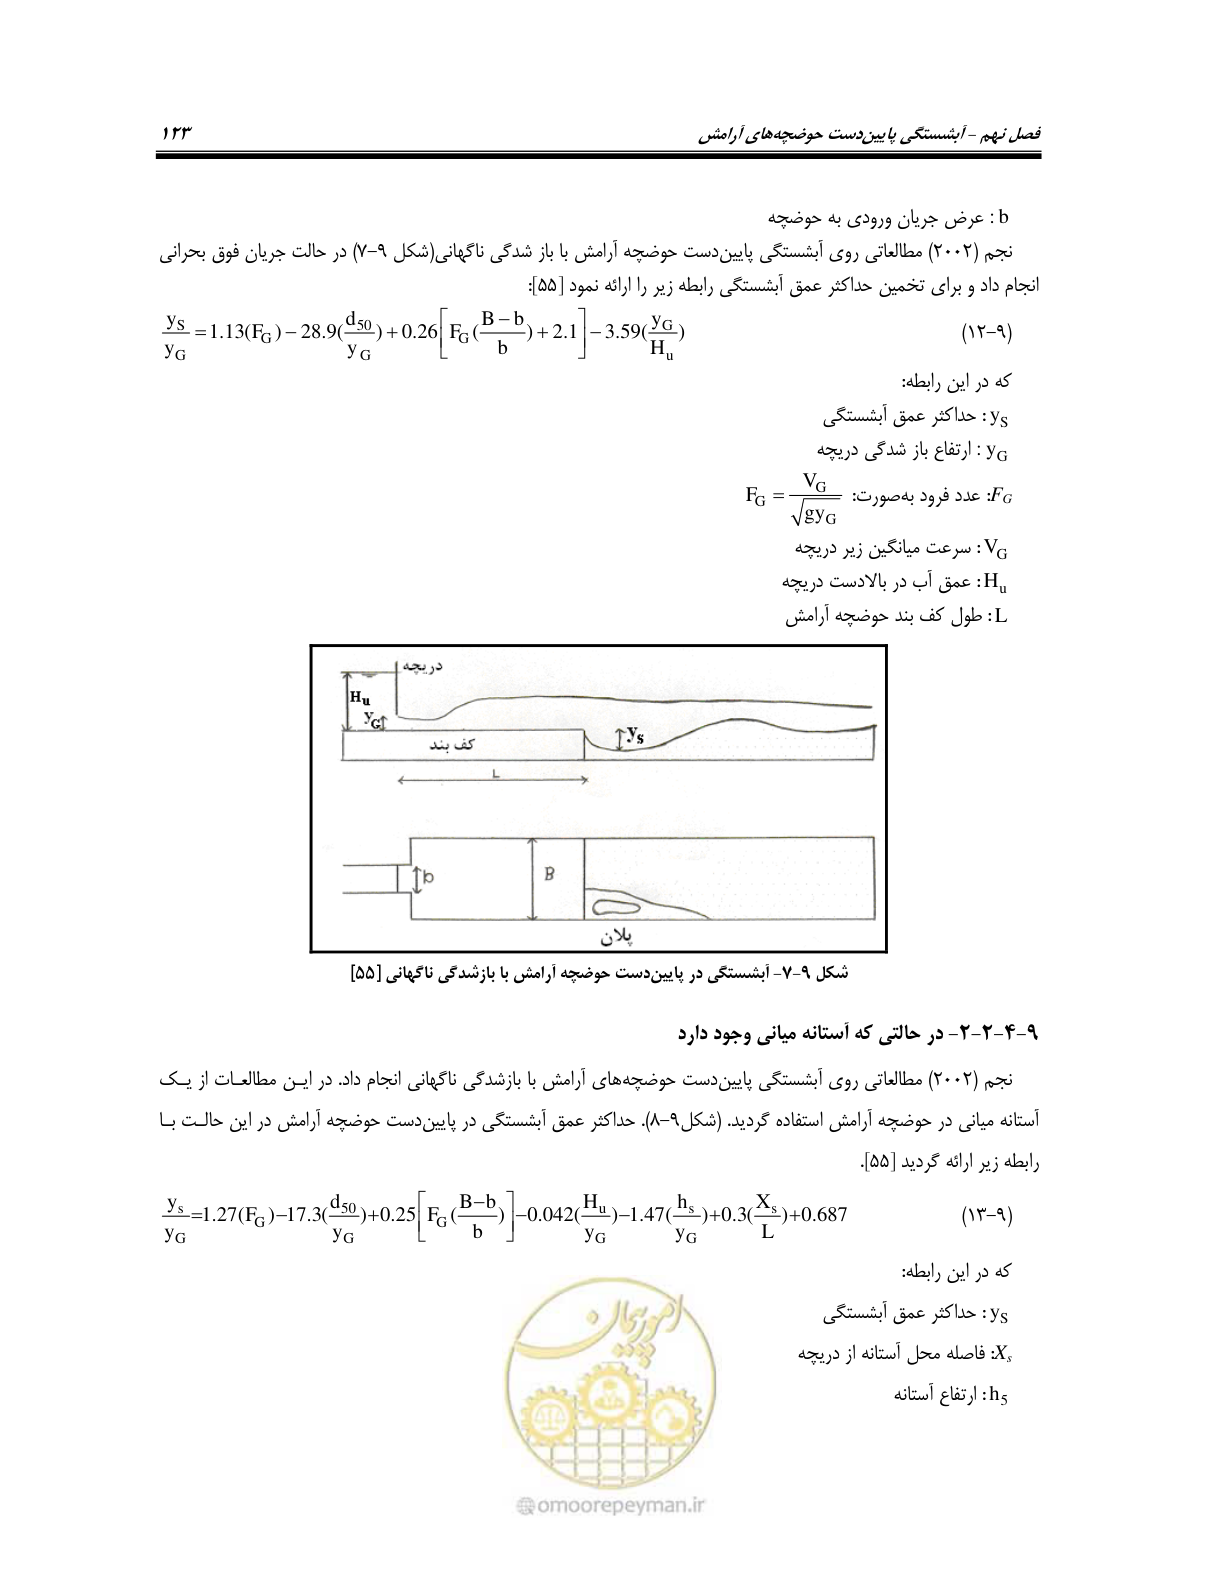 فصل نهم - آبشستگی پایین‌دست حوضچه‌های آرامش ۱۲۳
b : عرض جریان ورودی به حوضچه
نجم (۲۰۰۲) مطالعاتی روی آبشستگی پایین‌دست حوضچه آرامش با باز شدگی ناگهانی(شکل ۹-۷) در حالت جریان فوق بحرانی
انجام داد و برای تخمین حداکثر عمق آبشستگی رابطه زیر را ارائه نمود [۵۵]:
y_S/y_G = 1.13(F_G) − 28.9(d_50/y_G) + 0.26[F_G((B−b)/b) + 2.1] − 3.59(y_G/H_u) (۹-۱۲)
که در این رابطه:
y_S : حداکثر عمق آبشستگی
y_G : ارتفاع باز شدگی دریچه
F_G: عدد فرود به‌صورت: F_G = V_G/√(gy_G)
V_G : سرعت میانگین زیر دریچه
H_u : عمق آب در بالادست دریچه
L : طول کف بند حوضچه آرامش
دریچه
H_u
y_G
y_s
کف بند
L
b
B
پلان
شکل ۹-۷- آبشستگی در پایین‌دست حوضچه آرامش با بازشدگی ناگهانی [۵۵]
۹-۴-۲-۲- در حالتی که آستانه میانی وجود دارد
نجم (۲۰۰۲) مطالعاتی روی آبشستگی پایین‌دست حوضچه‌های آرامش با بازشدگی ناگهانی انجام داد. در این مطالعات از یک
آستانه میانی در حوضچه آرامش استفاده گردید. (شکل۹-۸). حداکثر عمق آبشستگی در پایین‌دست حوضچه آرامش در این حالت با
رابطه زیر ارائه گردید [۵۵].
y_s/y_G =1.27(F_G)−17.3(d_50/y_G)+0.25[F_G((B−b)/b)]−0.042(H_u/y_G)−1.47(h_s/y_G)+0.3(X_s/L)+0.687 (۹-۱۳)
که در این رابطه:
y_S : حداکثر عمق آبشستگی
X_s: فاصله محل آستانه از دریچه
h_5 : ارتفاع آستانه
امور پیمان
@omoorepeyman.ir